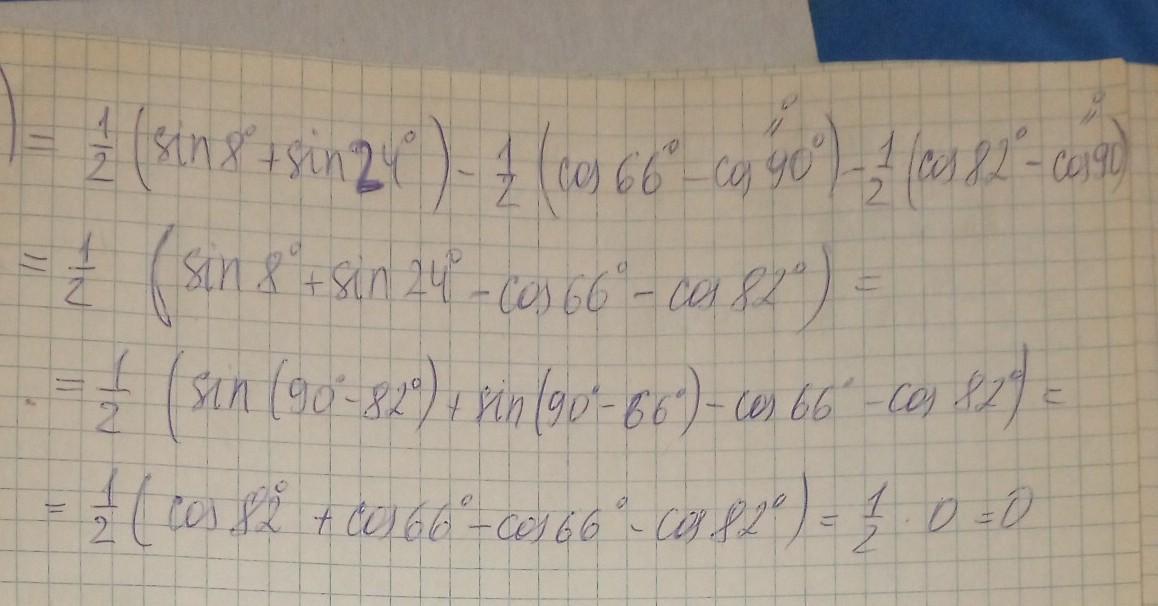 ) = 1/2 (sin 8° + sin 24°) - 1/2 (cos 66° - cos 90°) - 1/2 (cos 82° - cos 90)
= 1/2 (sin 8° + sin 24° - cos 66° - cos 82°) =
= 1/2 (sin (90° - 82°) + sin (90° - 66°) - cos 66° - cos 82°) =
= 1/2 (cos 82° + cos 66° - cos 66° - cos 82°) = 1/2 · 0 = 0